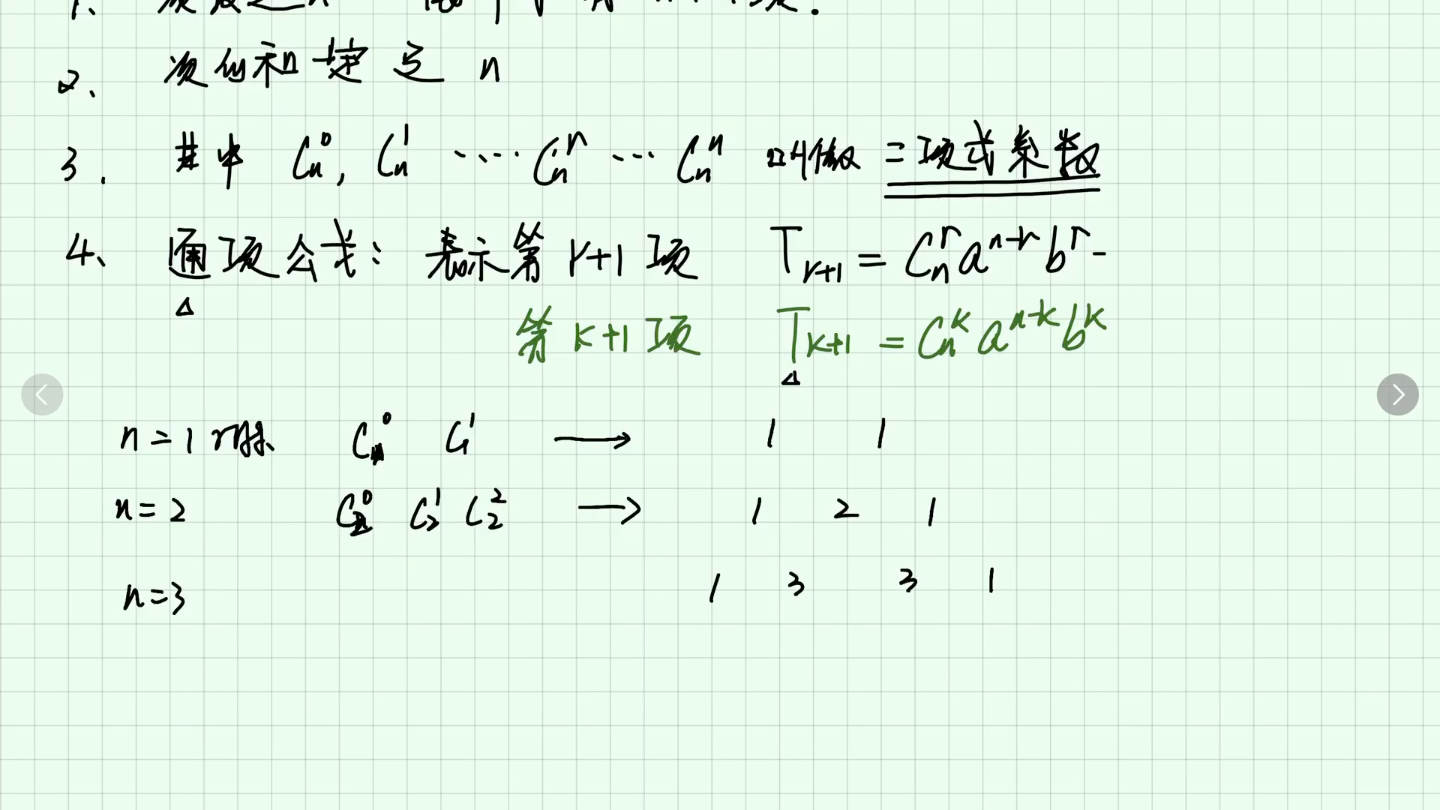 2、 次的和一定是 n
3. 其中 Cₙ⁰, Cₙ¹ ···· Cₙʳ ··· Cₙⁿ 叫做 二项式系数
4、 通项公式: 表示第 r+1 项 Tᵣ₊₁ = Cₙʳ aⁿ⁻ʳ bʳ -
第 k+1 项 Tₖ₊₁ = Cₙᵏ aⁿ⁻ᵏ bᵏ
n=1 时 → 1 1
n=2 C₂⁰ C₂¹ C₂² → 1 2 1
n=3 1 3 3 1